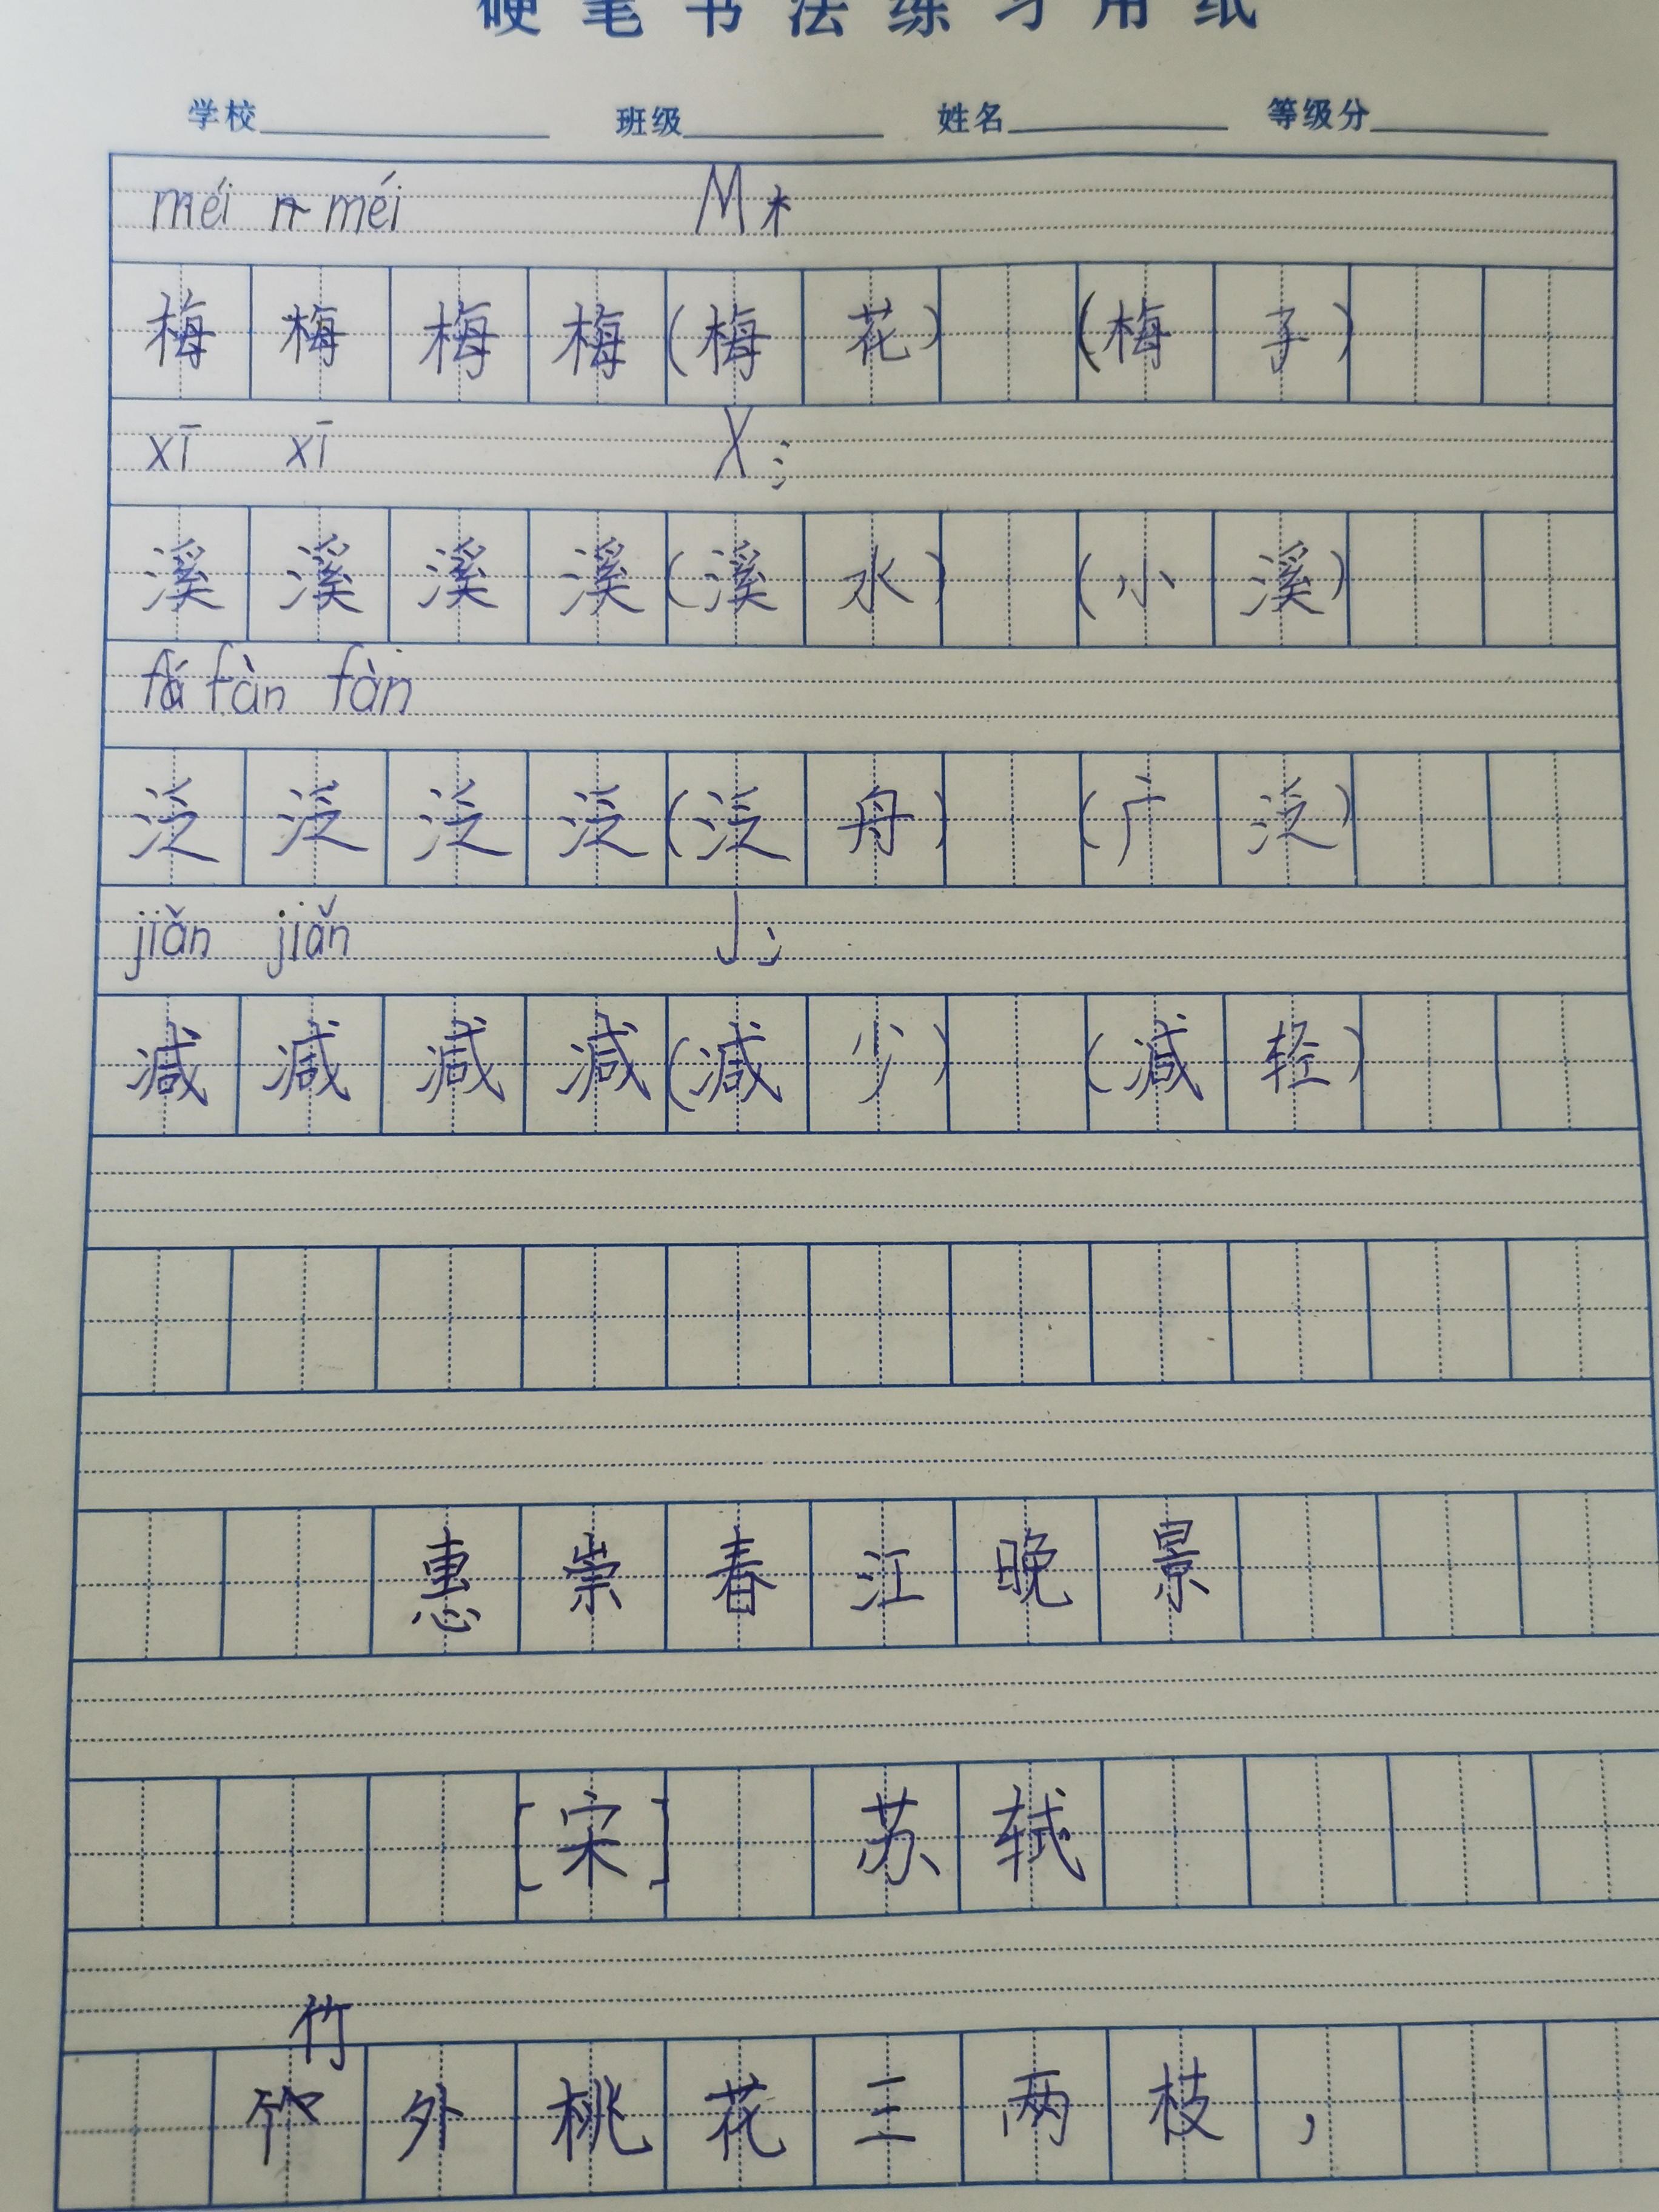 硬笔书法练习用纸
学校 班级 姓名 等级分
méi méi M 木
梅 梅 梅 梅 (梅 花) (梅 子)
xī xī X 氵
溪 溪 溪 溪 (溪 水) (小 溪)
fá fàn fàn
泛 泛 泛 泛 (泛 舟) (广 泛)
jiǎn jiǎn J 冫
减 减 减 减 (减 少) (减 轻)
惠 崇 春 江 晚 景
[宋] 苏 轼
竹
外 桃 花 三 两 枝 ,